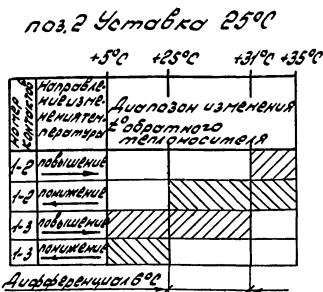 поз.2 Уставка 25°С
+5°С +25°С +31°С +35°С
Номер контактов
Направле-
ние изме-
нения тем-
пературы
Диапазон изменения
t° обратного
теплоносителя
1-2 повышение
1-2 понижение
1-3 повышение
1-3 понижение
Дифференциал 6°С